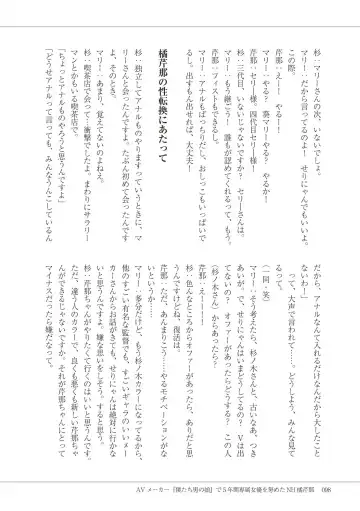 杉：マリーさんの次、いないでしょ。
マリー：だから言ってるのよ！　せりにゃんでもいいよ。
この際。
芹那：え―！　やる―！
マリー：やる？　葵マリーやる？　やるか！
芹那：セリー様。四代目セリー様！
杉：三代目、いないじゃないですか？　セリーさんは。
マリー：もう継ごう！　誰もが認めてくれるって、もう。
芹那：フィストもできるし。
マリー：アナルもばっちりだし、おしっこもいっぱいで
るし。出すもん出せれば、大丈夫！
橘芹那の性転換にあたって
杉：独立してアナルものやりますっていうときに、マ
リーさんと会ったんですよ。たぶん初めて会ったんです
よ、そのとき。
マリー：あまり、覚えてないのよねえ。
杉：喫茶店で会って…衝撃でしたよ。まわりにサラリー
マンとかもいる喫茶店で。
「ちょっとアナルものやろうと思うんですよ」
「どうせアナルって言っても、みんなうんこしているん
だから、アナルなんて入れるだけなんだから大したこと
ないわー」
って、大声で言われて……、どうしよう、みたいな。
（一同・笑）
マリー：そう考えたら、杉ノ木さんと、古いなあ、つき
あいが。で、せりにゃんはいまどうしてるの？　Ｖは出
てないの？　オファーがあったらどうする？　この人
（杉ノ木さん）からあったら？
芹那：えーーーー！
杉：色んなところからオファーがあったら、ありだと思
うんですけどね、復活は。
芹那：ただ、あんまりこう……やるモチベーションがな
いというか……。
マリー：多分だけど、もう杉ノ木カラーになってるから、
他のすごい有名な監督でも、すごいギャラのいいメー
カーさんからお話がきても、せりにゃんは絶対に行かな
いと思うんですよ。嫌な思いをしそう。すると思う。
杉：芹那ちゃんがやりたくて行くのはいいと思うんです。
ただ、違う人のカラーで、良くも悪くも新しい芹那ちゃ
んができるじゃないですか、それが芹那ちゃんにとって
マイナスだったら嫌だなって。
AVメーカー『僕たち男の娘』で5年間専属女優を努めたNH橘芹那　098